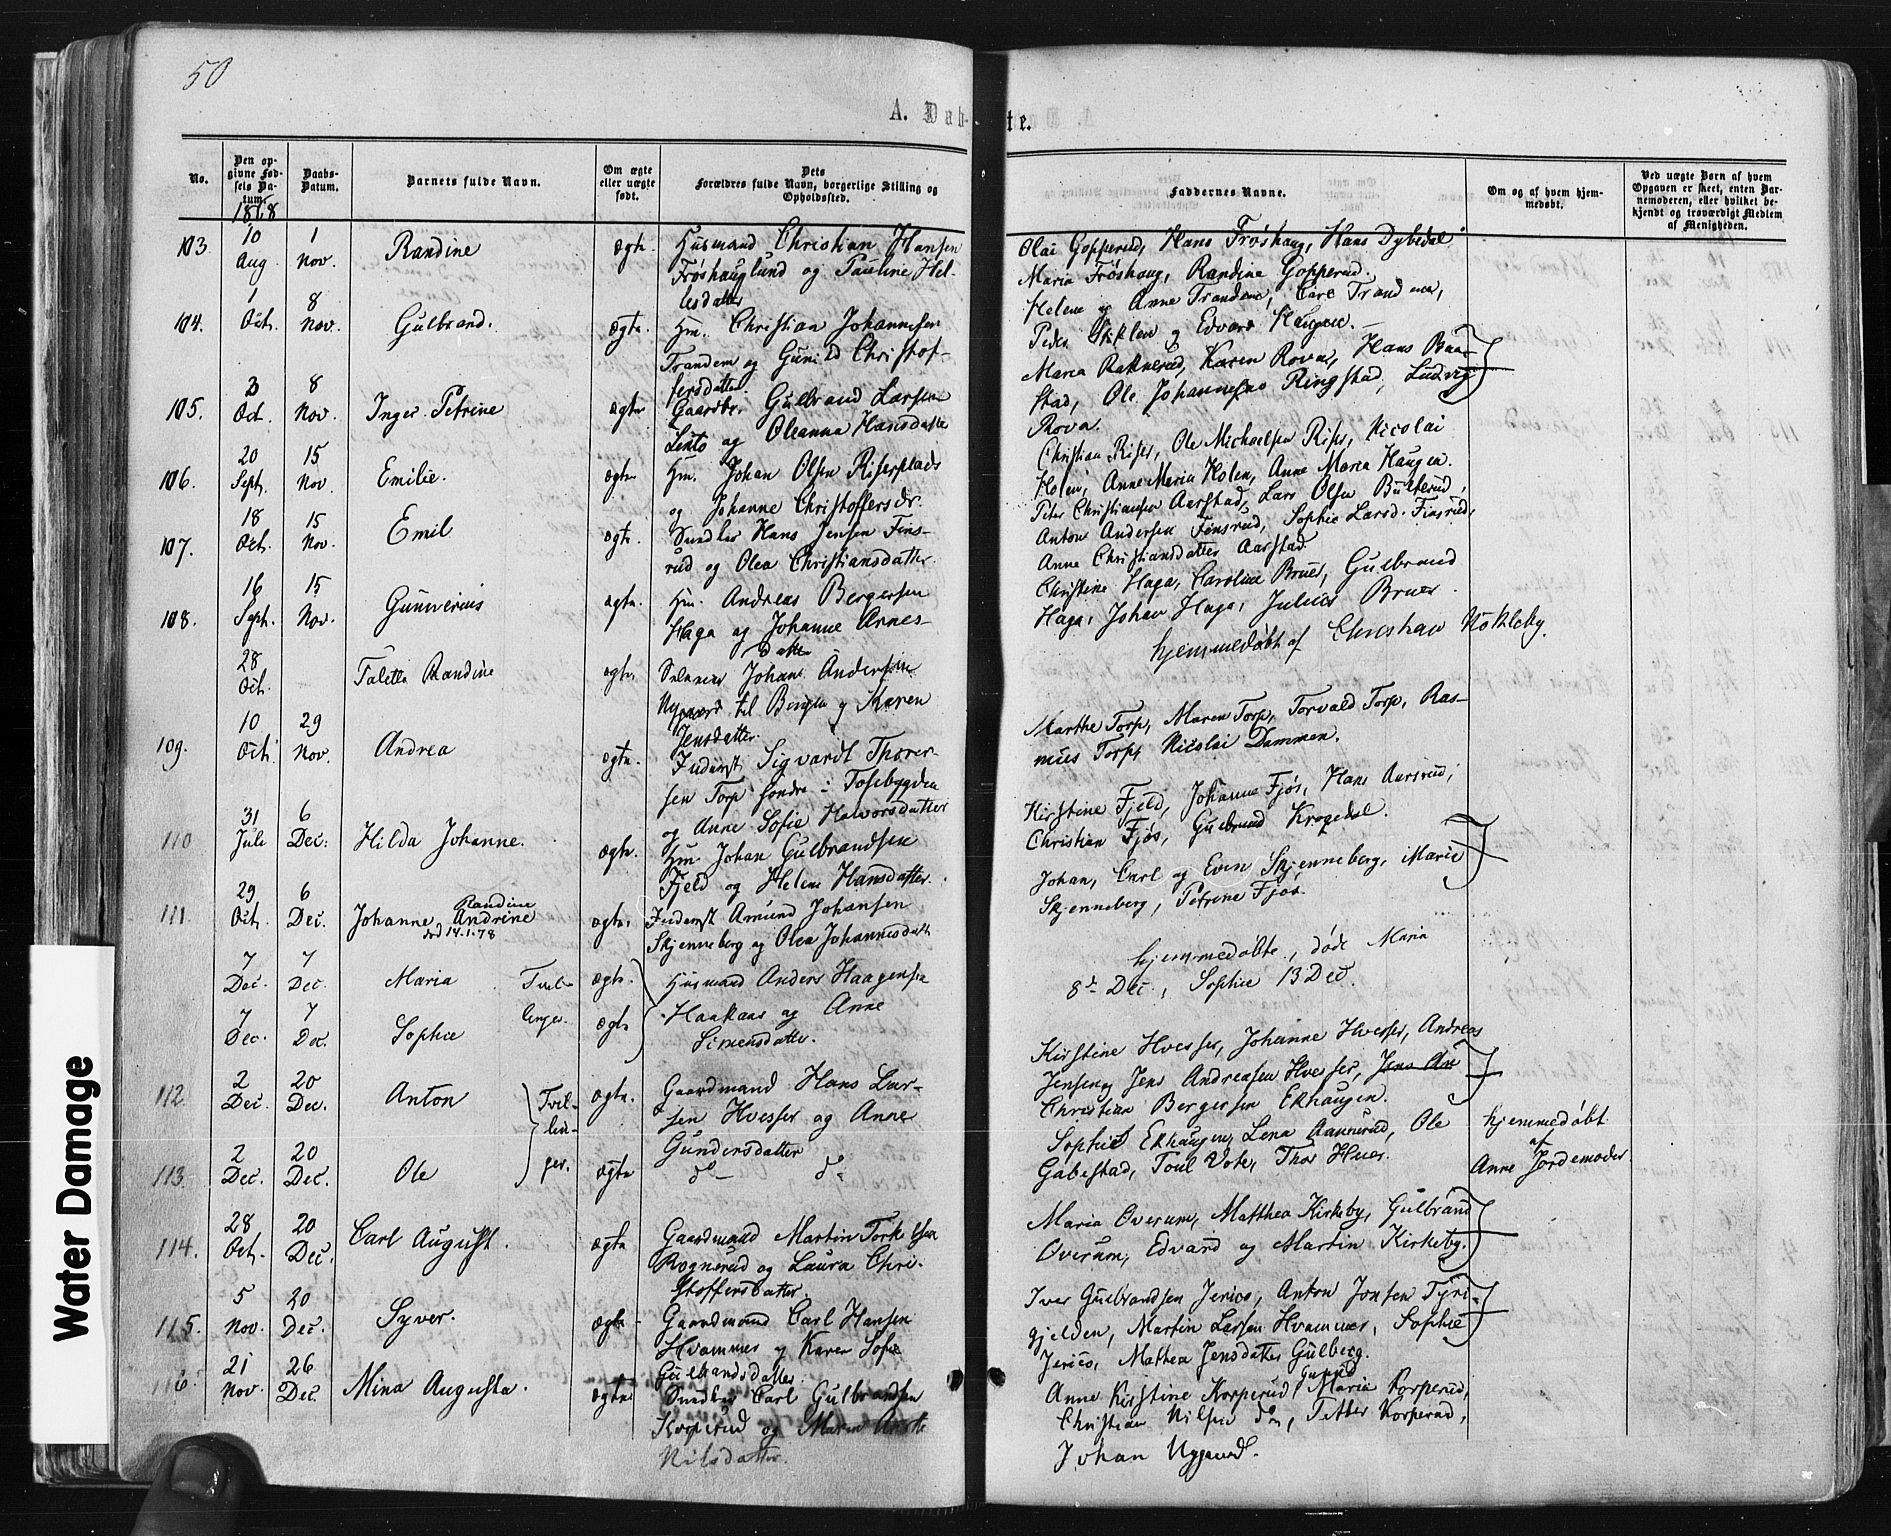 50
A. Dab-
te.
No.
Den op-
givne Fød-
sels Da-
tum.
Daabs-
Datum.
Barnets fulde Navn.
Om ægte
eller uægte
født.
Dets
Forældres fulde Navn, borgerlige Stilling og
Opholdssted.
Faddernes Navne.
Om og af hvem hjem-
medøbt.
Ved uægte Børn af hvem
Opgaven er skeet, enten Bar-
nemoderen, eller hvilket be-
kjendt og troværdigt Medlem
af Menigheden.
1868
103. 10 Aug 1 Nov. Randine ægte. Husmand Christian Hansen
Frøshauglund og Pauline Hel-
lesdatter
Olai Gopperud, Hans Frøshaug, Hans Dybedal
Maria Frøshaug, Randine Gopperud.
104. 1 Oct. 8 Nov. Gulbrand. ægte. Hm. Christian Johannesen
Trandem og Gunild Christof-
fersdatter
Helene og Anne Trandem, Carl Trandem,
Peder og Edvard Haugen.
105. 3 Oct. 8 Nov. Inger Petrine ægte Gaardbr. Gulbrand Larsen
og Oleanna Hansdatter
Maria Raknerud, Karen Rova, Hans Baa-
stad, Ole Johannesen Ringstad, Ludvig
Rova.
106. 20 Sept. 15 Nov. Emilie. ægte Hm. Johan Olsen Riserplads
og Johanne Christoffersdr.
Christian Riser, Ole Michaelsen Riser, Nicolai
Holen, Anne Maria Holen, Anne Maria Haugen.
107. 18 Oct. 15 Nov. Emil ægte. Hans Jensen Fins-
rud og Olea Christiansdatter.
Peter Christiansen Aarstad, Lars Olsen Bulterud,
Anton Andersen Finsrud, Sophie Larsd. Finsrud,
Anne Christiansdatter Aarstad.
108. 16 Sept. 15 Nov. Gunnerius ægte. Hm. Andreas Bergersen
Haga og Johanne Arnes-
datter
Christine Haga, Caroline Bruer, Gulbrand
Haga, Johan Haga, Julius Bruer.
28 Oct. Taletta Randine ægte. Johan Andersen
Nygaard til Bergen og Karen
Jensdatter.
hjemmedøbt af Christian Nøkleby.
109. 10 Oct. 29 Nov. Andrea ægte. Inderst Sigvardt Thorer-
sen Torp søndre i Tosebygden
og Anne Sofie Halvorsdatter
Marthe Torp, Maren Torp, Torvald Torp, Ras-
mus Torp, Nicolai Dammen.
110 31 Juli 6 Dec. Hilda Johanne. ægte. Hm. Johan Gulbrandsen
Fjeld og Helene Hansdatter.
Kirstine Fjeld, Johanne Fjøs, Hans Aarsrud,
Christian Fjøs, Gulbrand Krogedal.
111. 29 Oct. 6 Dec. Johanne Randine Andrine
død 14.1.78
ægte. Inderst Amund Johansen
Skjenneberg og Olea Johannesdatt.
Johan, Carl og Even Skjenneberg, Marie
Skjenneberg, Petrine Fjøs.
7 Dec. 7 Dec. Maria Tvil- ægte. Husmand Anders Haagensen
7 Dec. 7 Dec. Sophie linger. ægte Haakaas og Anne
Simensdatter.
hjemmedøbte, døde Maria
8de Dec., Sophie 13 Dec.
112 2 Dec. 20 Dec. Anton Tvil- ægte. Gaardmand Hans Lar-
sen Hvesser og Anne
Gundersdatter
Kirstine Hvesser, Johanne Hvesser, Andreas
Jensen, Jens Andreasen Hvesser, Jens An
Christian Bergersen Ekhaugen.
113. 2 Dec. 20 Dec. Ole lin- ger. ægte do do
Sophie Ekhaugen, Lena Aannerud, Ole
Gabestad, Thor Huer.
hjemmedøbt
af
Anne Jordemoder.
114. 28 Oct. 20 Dec. Carl August. ægte Gaardmand Martin Torkelsen
Rognerud og Laura Chri-
stoffersdatter.
Maria Overum, Matthea Kirkeby, Gulbrand
Overum, Edvard og Martin Kirkeby.
115. 5 Nov. 20 Dec. Syver. ægte Gaardmand Carl Hansen
Hvammer og Karen Sofie
Gulbrandsdatter.
Iver Gulbrandsen Jerico, Anton Jonsen Tyri-
gjelden, Martin Larsen Hvammer, Sophie
Jerico, Mathea Jensdatter Gulberg.
116. 21 Nov. 26 Dec. Mina Augusta. ægte Carl Gulbrandsen
Korperud og Maren
Nilsdatter.
Anne Kirstine Korperud, Gunild Marie Korperud,
Christian Nilsen do, Petter Korperud,
Johan Nygaard.
Water Damage